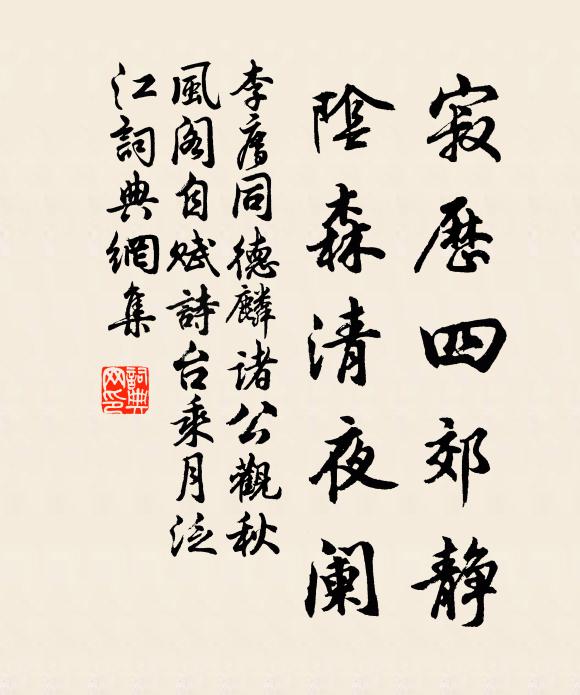 寂歷四郊静
陰森清夜阑
李廌同德麟諸公觀秋
風阁自赋詩台乘月泛
江詞典網集
詞典
网印